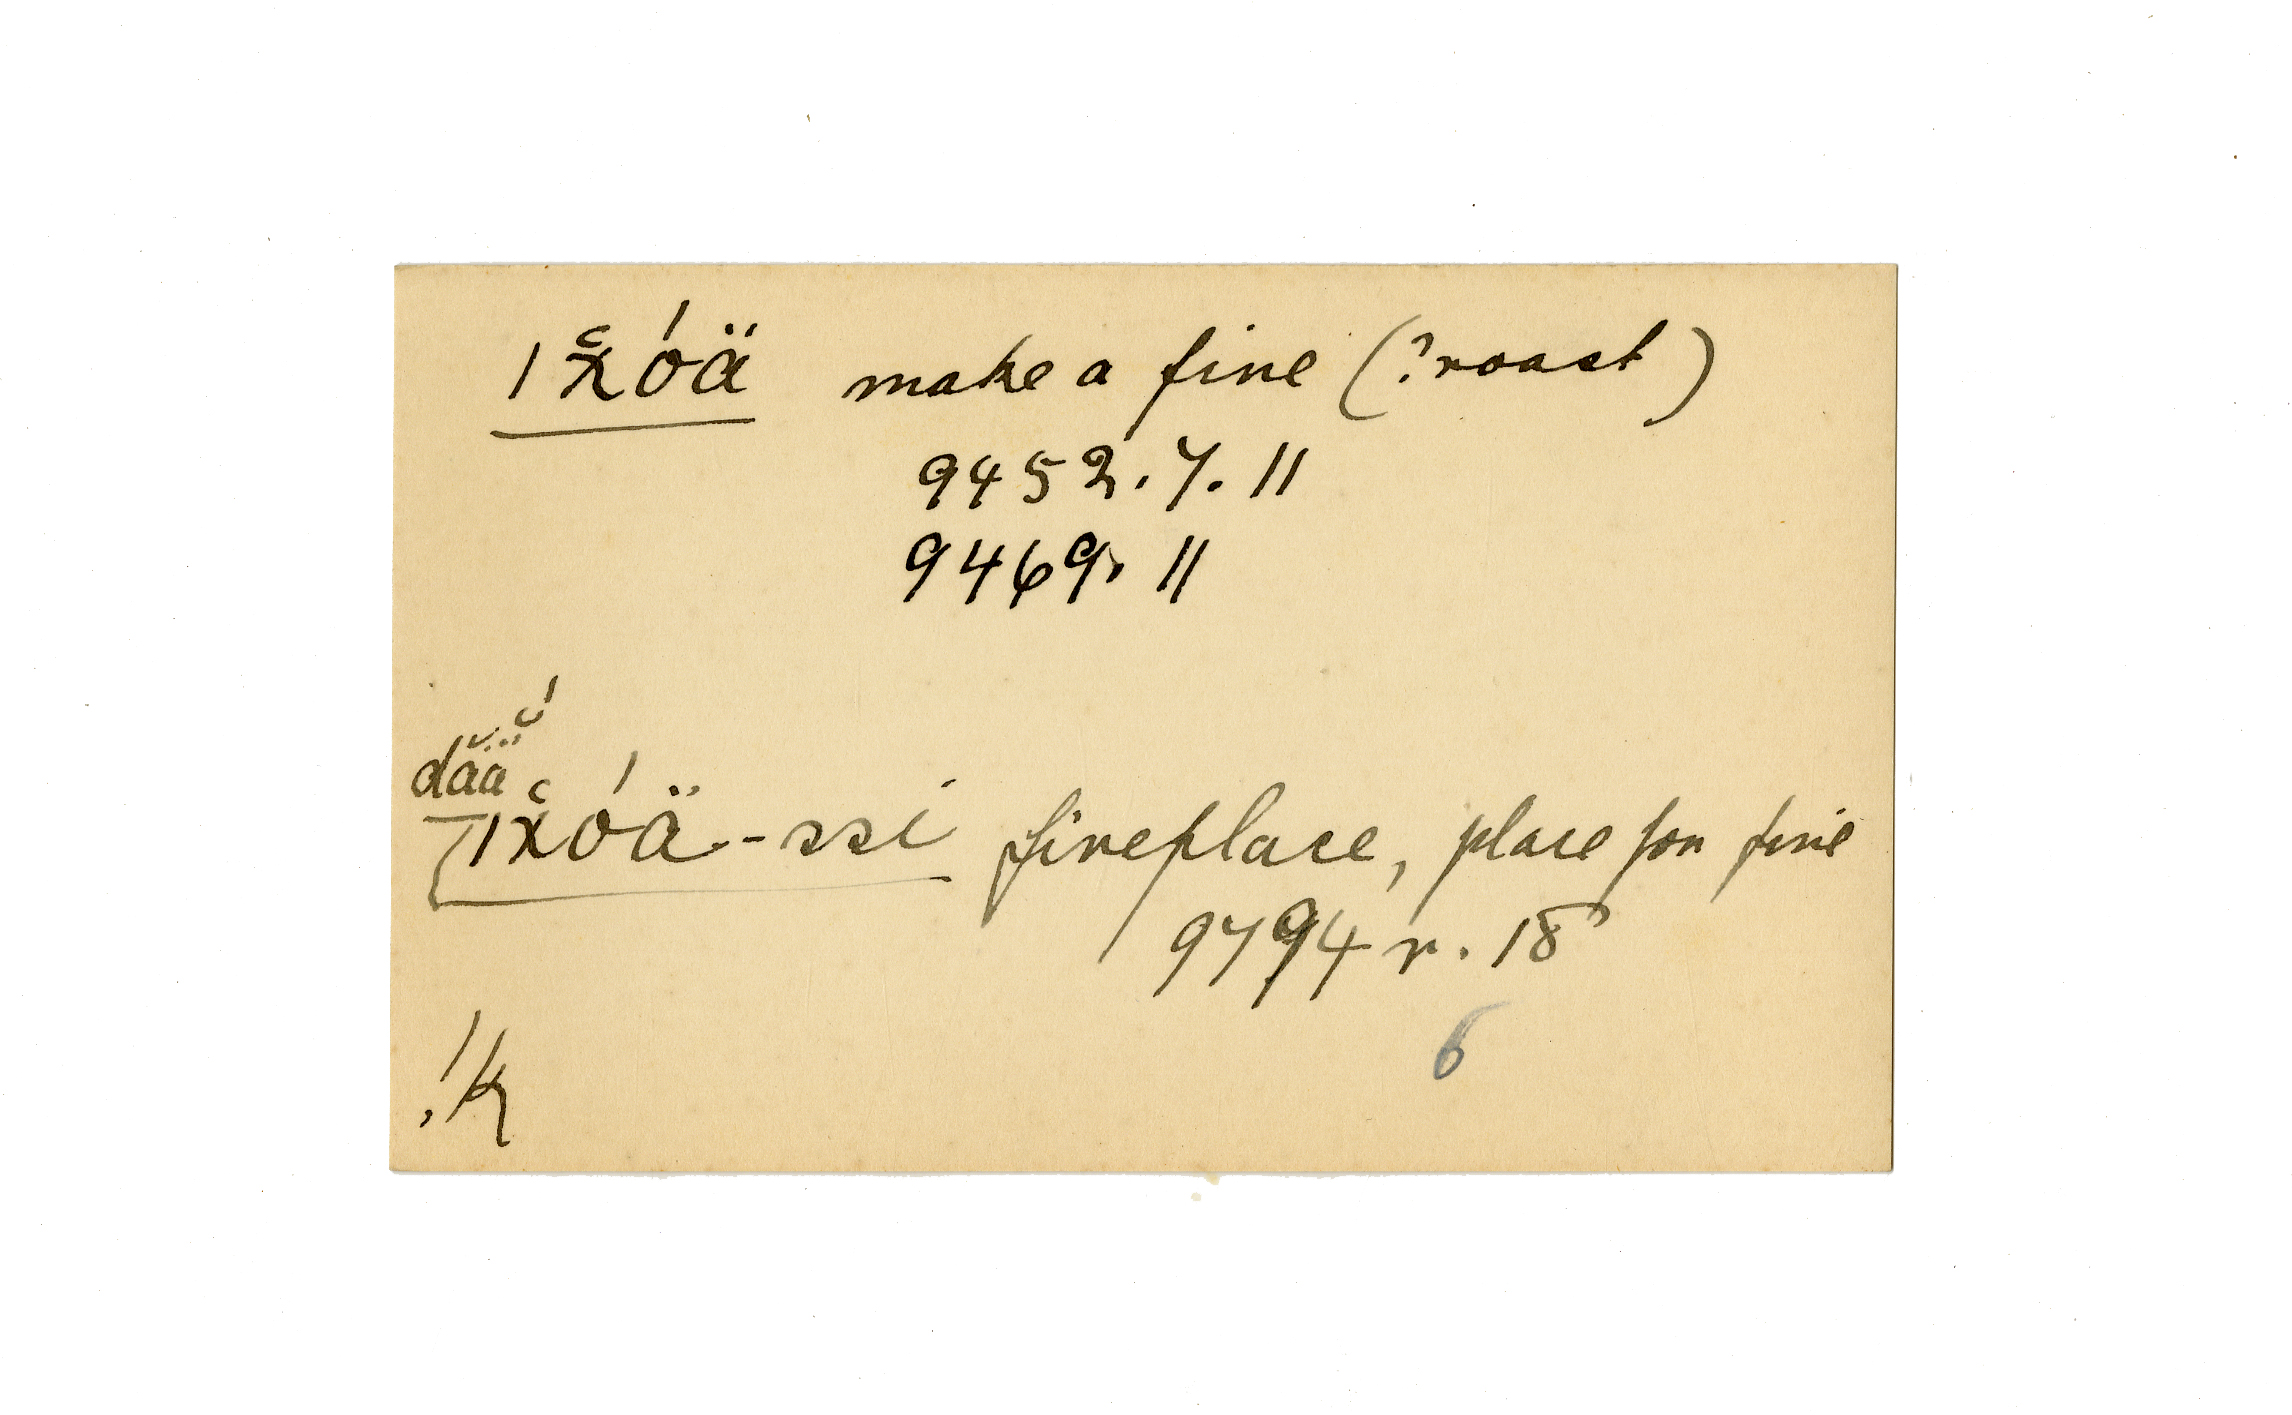 ǀx̆óä make a fire (?roast)
9452.7.11
9469.11
dăä̆́
ǀx̆óä-ssi fireplace, place for fire
9794 r. 18
6
!k